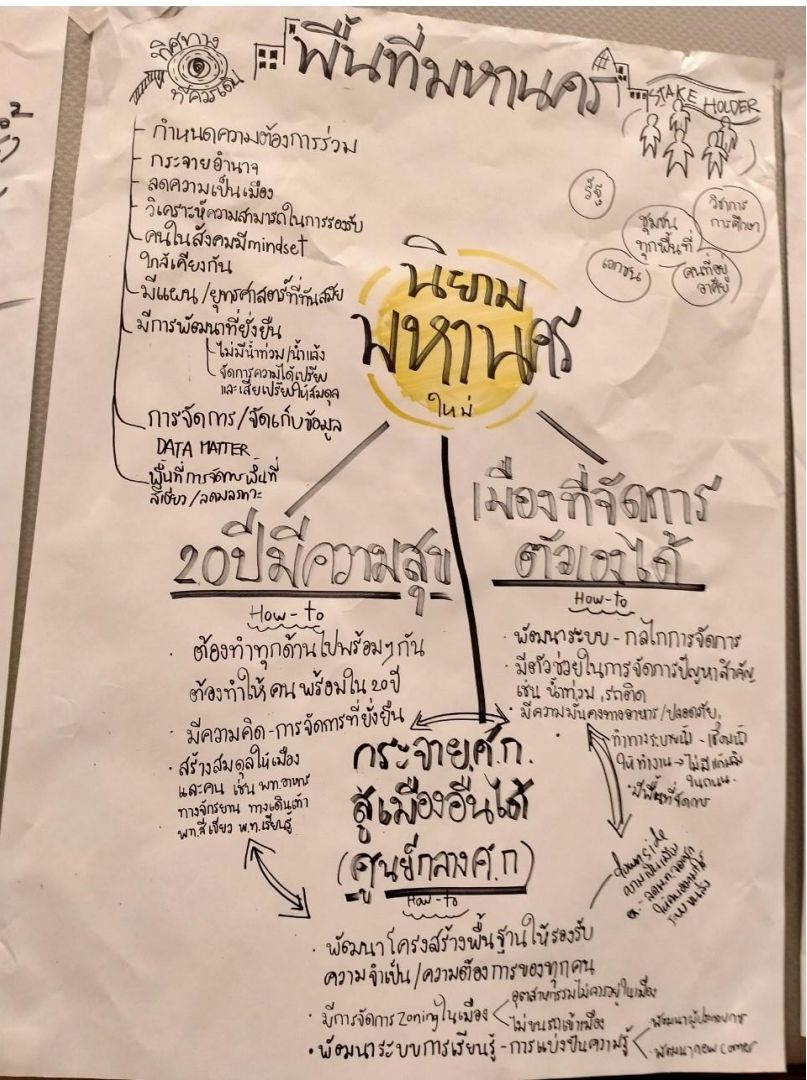 ทิศทาง
ที่ควรเดิน
พื้นที่มหานคร
STAKE HOLDER
- กำหนดความต้องการร่วม
- กระจายอำนาจ
- ลดความเป็นเมือง
- วิเคราะห์ความสามารถในการรองรับ
- คนในสังคมมี mindset
ใกล้เคียงกัน
- มีแผน/ยุทธศาสตร์ที่ทันสมัย
- มีการพัฒนาที่ยั่งยืน
ไม่มีน้ำท่วม/น้ำแล้ง
จัดการความได้เปรียบ
และเสียเปรียบให้สมดุล
การจัดการ/จัดเก็บข้อมูล
DATA MATTER
พื้นที่การจัดการพื้นที่
สีเขียว/ลดมลภาวะ
วิชาการ
การศึกษา
ชุมชน
ทุกพื้นที่
เอกชน
คนที่อยู่
อาศัย
นิยาม
มหานคร
ใหม่
20ปีมีความสุข
How-to
· ต้องทำทุกด้านไปพร้อมๆกัน
ต้องทำให้คนพร้อมใน 20ปี
· มีความคิด-การจัดการที่ยั่งยืน
· สร้างสมดุลให้เมือง
และคน เช่น พท.อาหาร
ทางจักรยาน ทางเดินเท้า
พท.สีเขียว พ.ท.เรียนรู้
เมืองที่จัดการ
ตัวเองได้
How-to
· พัฒนาระบบ-กลไกการจัดการ
· มีตัวช่วยในการจัดการปัญหาสำคัญ
เช่น น้ำท่วม, รถติด
· มีความมั่นคงทางอาหาร/ปลอดภัย,
ทำทางระบายน้ำ-เชื่อมน้ำ
ให้ทำงาน →ไม่มี
ในถนน.
กระจาย.ศ.ก.
สู่เมืองอื่นได้
(ศูนย์กลางศ.ก)
How-to
· พัฒนาโครงสร้างพื้นฐานให้รองรับ
ความจำเป็น/ความต้องการของทุกคน
· มีการจัดการ Zoning ในเมือง
อุตสาหกรรมไม่ควรอยู่ในเมือง
ไม่ขนรถเข้าเมือง
· พัฒนาระบบการเรียนรู้-การแบ่งปันความรู้
พัฒนาผู้ประกอบการ
พัฒนา new comer
downside